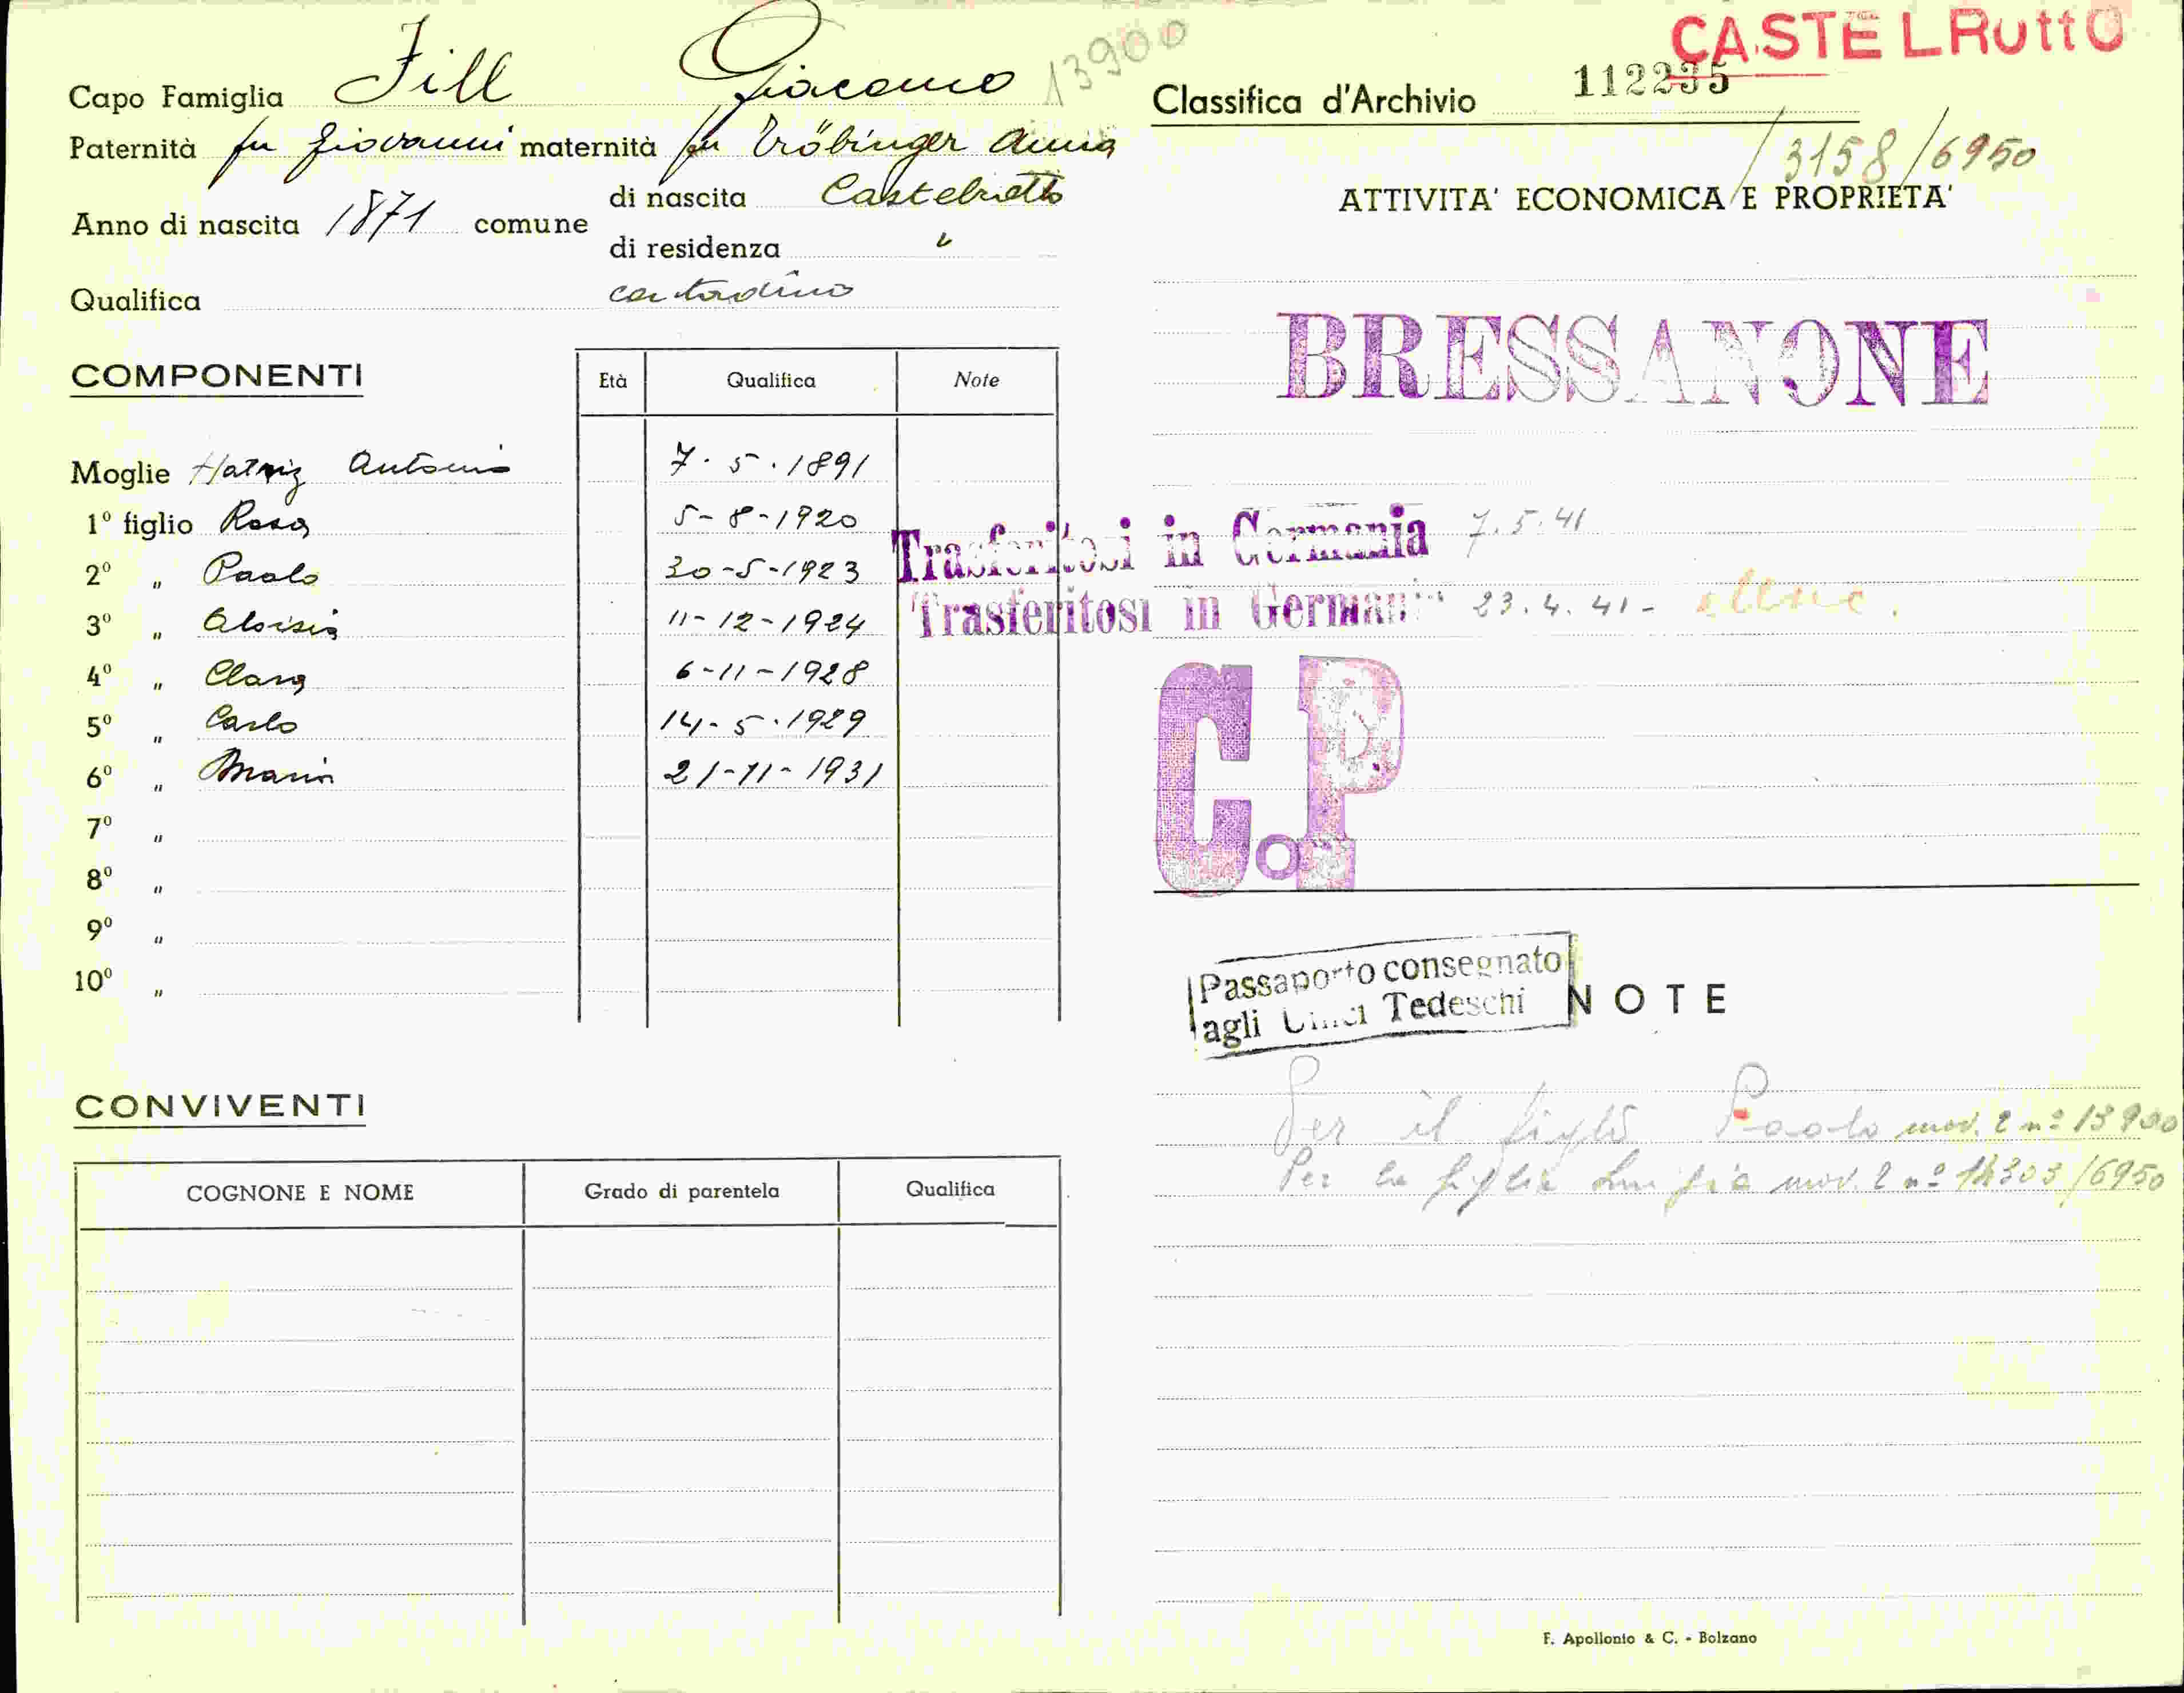 CASTELRuttO
Capo Famiglia Fill Giacomo 13900
Paternità fu Giovanni maternità fu Tröbinger Anna
Anno di nascita 1871 comune
di nascita Castelrotto
di residenza "
Qualifica contadino
COMPONENTI
Età Qualifica Note
Moglie Antonia 7.5.1891
1º figlio Rosa 5-8-1920
2º " Paolo 30-5-1923
3º " Aloisia 11-12-1924
4º " Clara 6-11-1928
5º " Carlo 14-5-1929
6º " Maria 21-11-1931
7º "
8º "
9º "
10º "
CONVIVENTI
COGNONE E NOME Grado di parentela Qualifica
Classifica d'Archivio 112235
/3158/6950
ATTIVITA' ECONOMICA E PROPRIETA'
BRESSANONE
Trasferitosi in Germania 7.5.41
Trasferitosi in Germania 23.4.41-
C.P
Passaporto consegnato
agli Uffici Tedeschi
NOTE
Per il figlio Paolo mod. 2 nº 13900
Per la figlia Luigia mod. 2 nº 14303/6950
F. Apollonio & C. - Bolzano